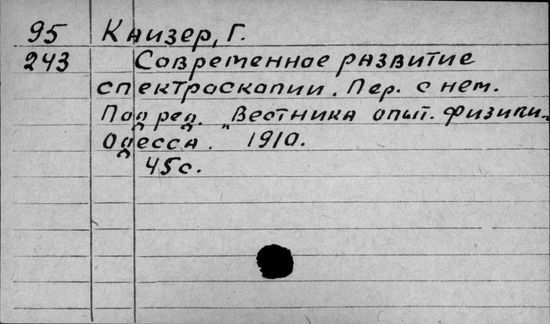 95 Каизер, Г.
243 Современное развитие
спектроскопии. Пер. с нем.
Под ред. „Вестника опыт. физики„
Одесса. 1910.
45с.